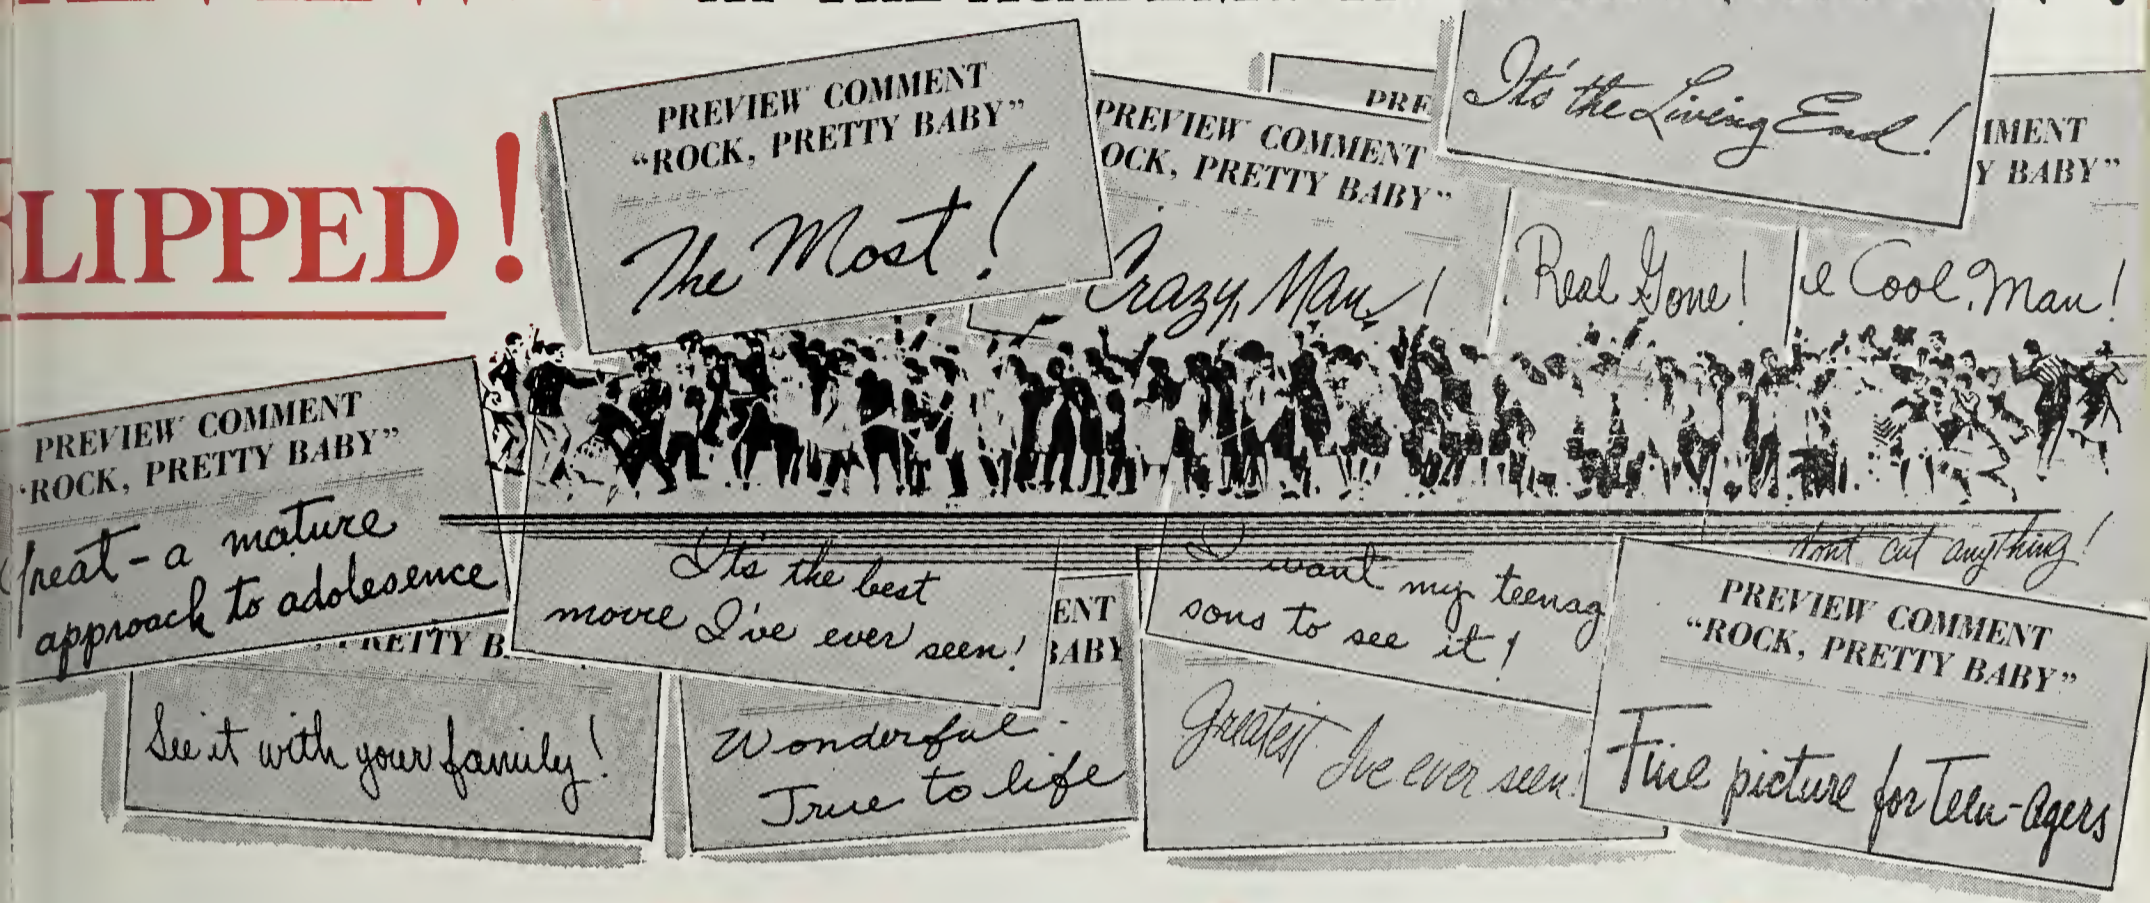 FLIPPED!
PREVIEW COMMENT
“ROCK, PRETTY BABY”
The Most!
PREVIEW COMMENT
OCK, PRETTY BABY”
Crazy, Man!
PRE
It's the Living End!
Real Gone!
MMENT
Y BABY”
Cool, Man!
PREVIEW COMMENT
“ROCK, PRETTY BABY”
Great - a mature
approach to adolesence
It's the best
movie I've ever seen!
I want my teenag
sons to see it!
dont cut anything!
PREVIEW COMMENT
“ROCK, PRETTY BABY”
Fine picture for Teen-agers
RETTY B
See it with your family!
ENT
BABY
Wonderful -
True to life
Greatest I've ever seen!